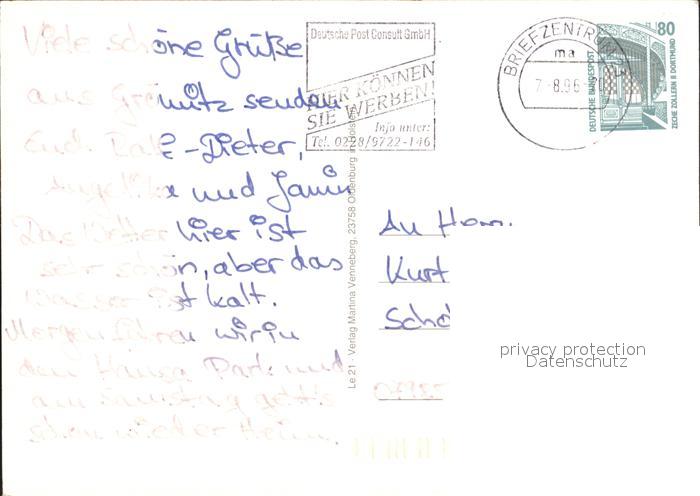 Viele schöne Grüße
aus Grömitz senden
Euch Ralf-Dieter,
Angelika und Janin
Das Wetter hier ist
sehr schön, aber das
Wasser ist kalt.
Morgen fahren wir in
den Hansa Park und
am Samstag geht's
schon wieder Heim.
Deutsche Post Consult GmbH
HIER KÖNNEN
SIE WERBEN!
Info unter:
Tel. 0228/9722-146
BRIEFZENTRUM 23
ma
7.-8.96-
80
DEUTSCHE BUNDESPOST
ZECHE ZOLLERN II DORTMUND
Le 21 - Verlag Martina Venneberg, 23758 Oldenburg in Holstein
An Herrn.
Kurt
privacy protection
Datenschutz